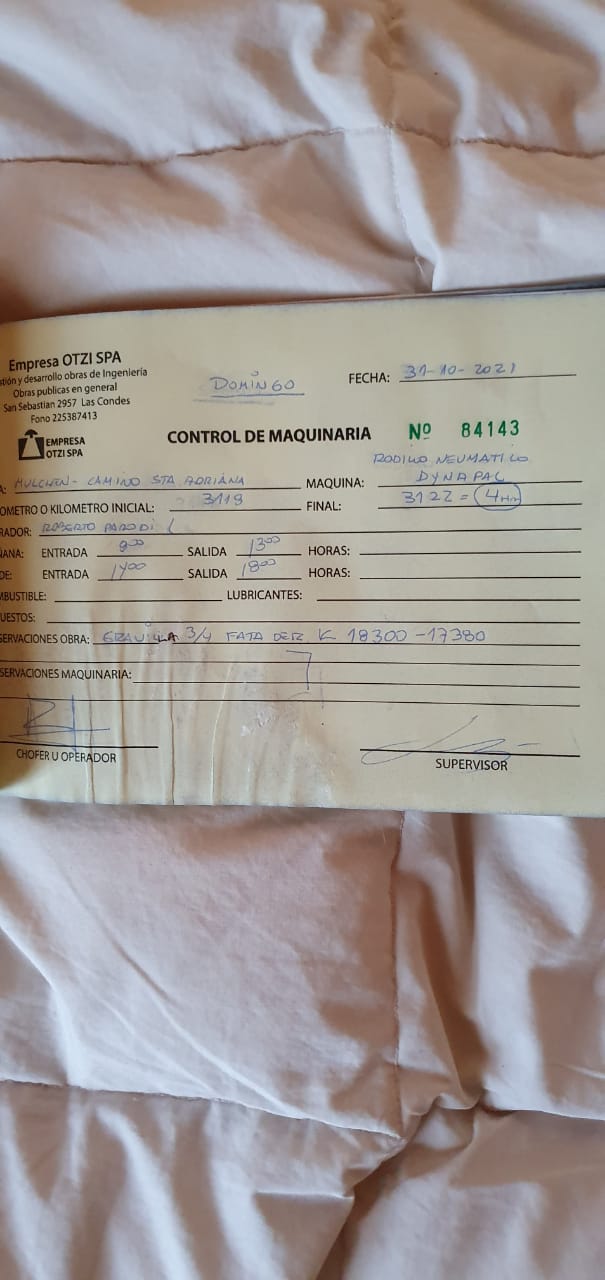 Empresa OTZI SPA
stión y desarrollo obras de Ingeniería
Obras publicas en general
San Sebastian 2957 Las Condes
Fono 225387413
EMPRESA
OTZI SPA
DOMINGO
FECHA: 31-10-2021
CONTROL DE MAQUINARIA Nº 84143
A: MULCHEN - CAMINO STA ADRIANA MAQUINA: RODILLO NEUMATICO
DYNAPAC
OMETRO O KILOMETRO INICIAL: 3118 FINAL: 3122 = 4 Hrs
RADOR: ROBERTO PARODI
ÑANA: ENTRADA 9:00 SALIDA 13:00 HORAS:
DE: ENTRADA 14:00 SALIDA 18:00 HORAS:
MBUSTIBLE: LUBRICANTES:
UESTOS:
SERVACIONES OBRA: GRAVILLA 3/4 FAJA DER. K 18300 - 17380
SERVACIONES MAQUINARIA:
CHOFER U OPERADOR
SUPERVISOR